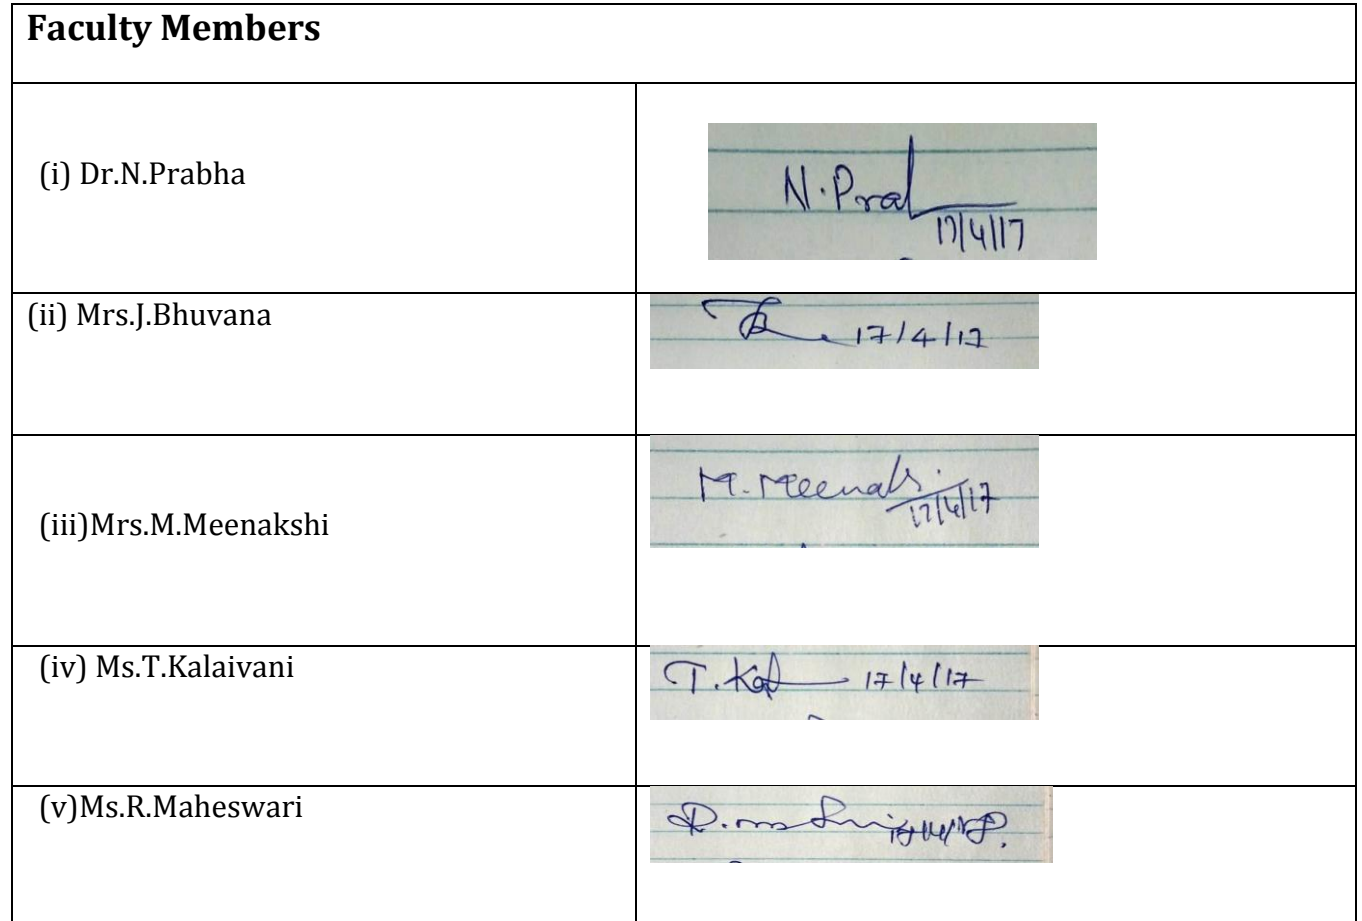 Faculty Members
(i) Dr.N.Prabha
N.Prab
17/4/17
(ii) Mrs.J.Bhuvana
17/4/17
(iii)Mrs.M.Meenakshi
M.Meenaks
17/4/17
(iv) Ms.T.Kalaivani
T.Kal 17/4/17
(v)Ms.R.Maheswari